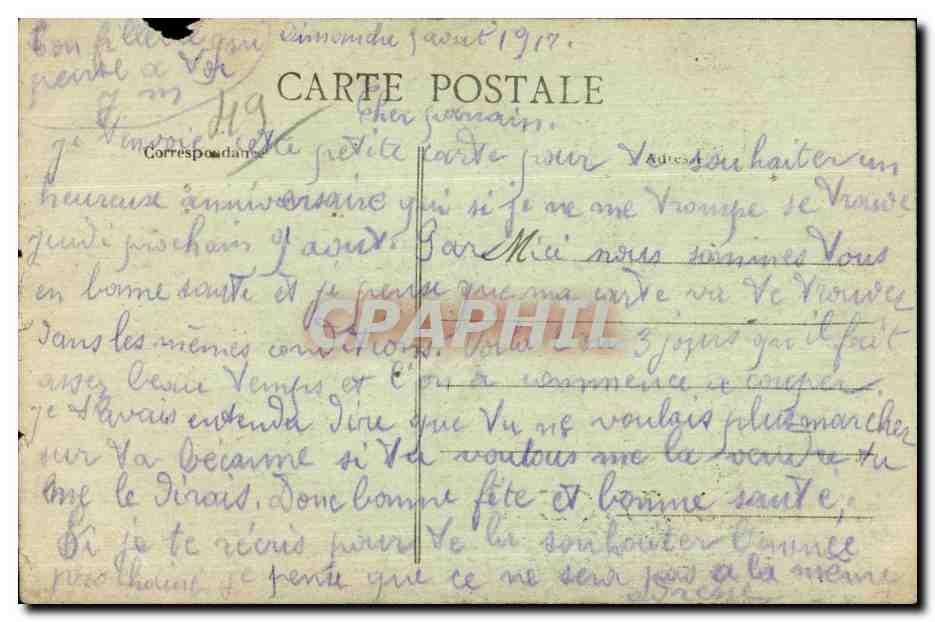 Dimanche 5 aout 1917.
Ton filleul qui
pense a Toi
CARTE POSTALE
49
Cher parrain.
Correspondance
Adresse
Je t'envoie cette petite carte pour te souhaiter un
heureux anniversaire qui si je ne me trompe se trouve
jeudi prochain 9 aout. Par ici nous sommes tous
en bonne sante et je pense que ma carte va te trouver
CPAPHIL
dans les mêmes conditions. Voila 2 ou 3 jours qu'il fait
assez beau temps et l'on a commence a couper.
je t'avais entendu dire que tu ne voulais plus marcher
sur ta bécanne si tu voulais me la vendre tu
me le dirais. Donc bonne fête et bonne sante,
Si je te récris pour te la souhouter l'annee
prochaine je pense que ce ne sera pas a la même
adresse